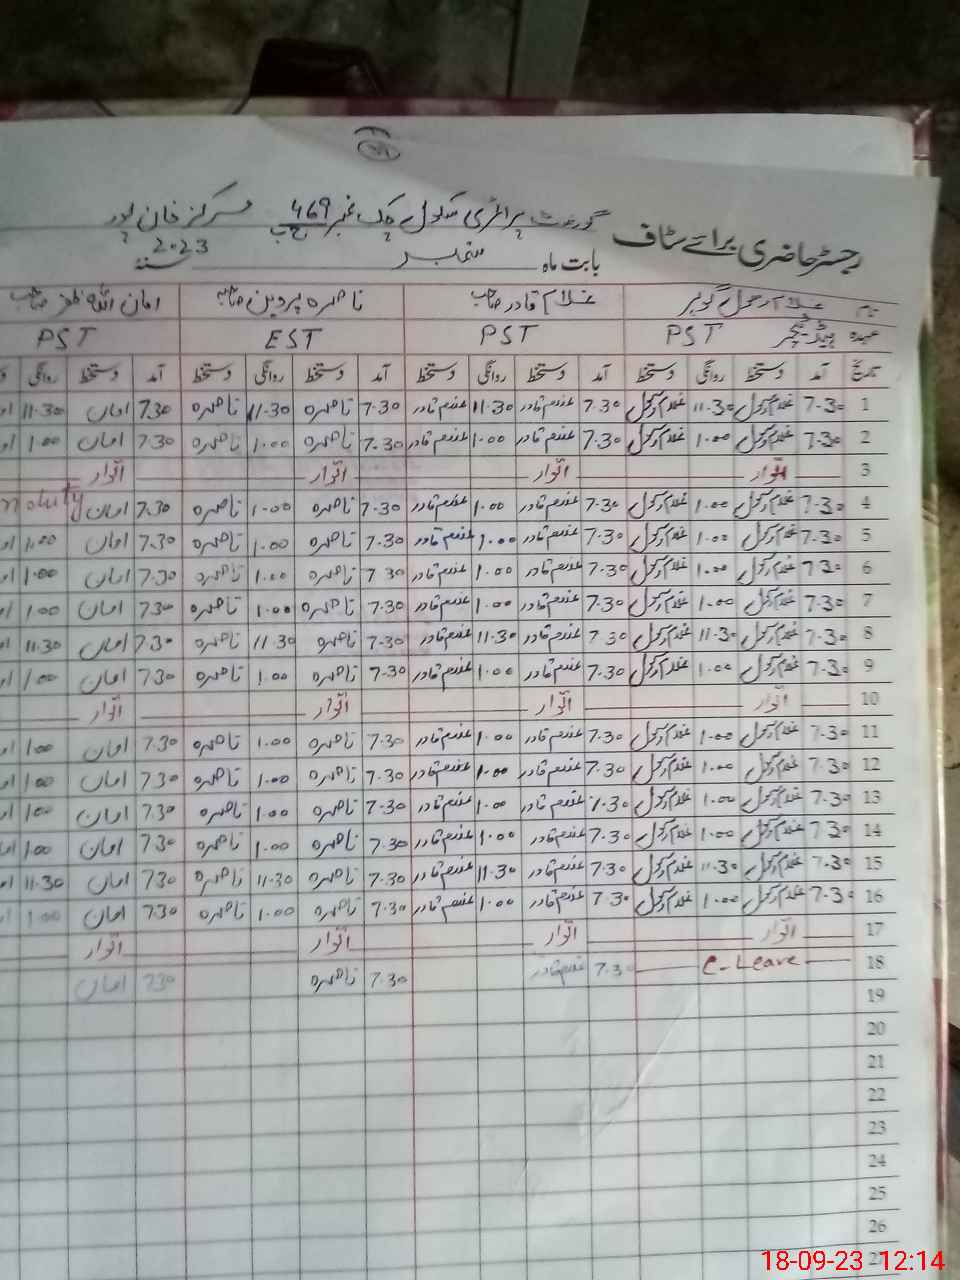 رجسٹر حاضری برائے سٹاف گورنمنٹ پرائمری سکول چک نمبر 469 ج ب مرکز خان پور
بابت ماہ ستمبر سنہ 2023
نام غلام رسول گوہر غلام قادر صاحب ناصرہ پروین صاحبہ امان اللہ ظفر صاحب
عہدہ ہیڈ ٹیچر PST PST EST PST
تاریخ آمد دستخط روانگی دستخط آمد دستخط روانگی دستخط آمد دستخط روانگی دستخط آمد دستخط روانگی
1 7.30 غلام رسول 11.30 غلام رسول 7.30 غلام قادر 11.30 غلام قادر 7.30 ناصرہ 11.30 ناصرہ 7.30 امان 11.30
2 7.30 غلام رسول 1.00 غلام رسول 7.30 غلام قادر 1.00 غلام قادر 7.30 ناصرہ 1.00 ناصرہ 7.30 امان 1.00
3 اتوار اتوار اتوار اتوار
4 7.30 غلام رسول 1.00 غلام رسول 7.30 غلام قادر 1.00 غلام قادر 7.30 ناصرہ 1.00 ناصرہ 7.30 امان duty
5 7.30 غلام رسول 1.00 غلام رسول 7.30 غلام قادر 1.00 غلام قادر 7.30 ناصرہ 1.00 ناصرہ 7.30 امان 1.00
6 7.30 غلام رسول 1.00 غلام رسول 7.30 غلام قادر 1.00 غلام قادر 7.30 ناصرہ 1.00 ناصرہ 7.30 امان 1.00
7 7.30 غلام رسول 1.00 غلام رسول 7.30 غلام قادر 1.00 غلام قادر 7.30 ناصرہ 1.00 ناصرہ 7.30 امان 1.00
8 7.30 غلام رسول 11.30 غلام رسول 7.30 غلام قادر 11.30 غلام قادر 7.30 ناصرہ 11.30 ناصرہ 7.30 امان 11.30
9 7.30 غلام رسول 1.00 غلام رسول 7.30 غلام قادر 1.00 غلام قادر 7.30 ناصرہ 1.00 ناصرہ 7.30 امان 1.00
10 اتوار اتوار اتوار اتوار
11 7.30 غلام رسول 1.00 غلام رسول 7.30 غلام قادر 1.00 غلام قادر 7.30 ناصرہ 1.00 ناصرہ 7.30 امان 1.00
12 7.30 غلام رسول 1.00 غلام رسول 7.30 غلام قادر 1.00 غلام قادر 7.30 ناصرہ 1.00 ناصرہ 7.30 امان 1.00
13 7.30 غلام رسول 1.00 غلام رسول 7.30 غلام قادر 1.00 غلام قادر 7.30 ناصرہ 1.00 ناصرہ 7.30 امان 1.00
14 7.30 غلام رسول 1.00 غلام رسول 7.30 غلام قادر 1.00 غلام قادر 7.30 ناصرہ 1.00 ناصرہ 7.30 امان 1.00
15 7.30 غلام رسول 11.30 غلام رسول 7.30 غلام قادر 11.30 غلام قادر 7.30 ناصرہ 11.30 ناصرہ 7.30 امان 11.30
16 7.30 غلام رسول 1.00 غلام رسول 7.30 غلام قادر 1.00 غلام قادر 7.30 ناصرہ 1.00 ناصرہ 7.30 امان 1.00
17 اتوار اتوار اتوار اتوار
18 C-Leave 7.30 غلام قادر 7.30 ناصرہ 7.30 امان
19
20
21
22
23
24
25
26
27
18-09-23 12:14